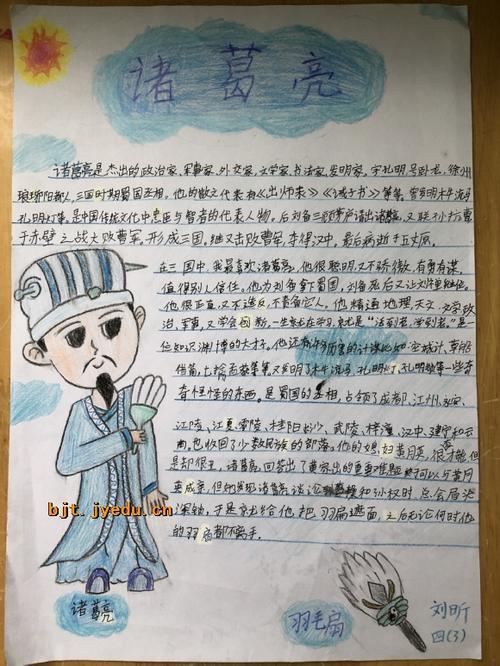 诸葛亮
诸葛亮是杰出的政治家、军事家、外交家、文学家、书法家、发明家。字孔明号卧龙,徐州
琅琊阳都人,三国时期蜀国丞相。他的散文代表有《出师表》《诫子书》等等。曾发明木牛流马
孔明灯等,是中国传统文化中忠臣与智者的代表人物。后刘备三顾茅庐请出诸葛亮,又联孙抗曹
于赤壁之战大败曹军,形成三国。继又击败曹军夺得汉中,最后病逝于五丈原。
在三国中,我最喜欢诸葛亮。他很聪明又不骄傲,有勇有谋,
值得别人信任。他为刘备拿下蜀国,刘备死后又让刘禅继位。
他很正直又不造反,不责备它人。他精通地理,天文,文学政
治,军事,又学会一生就在学习,就是“活到老,学到老。”是一
位知识渊博的大才。他还有许多厉害的计谋比如:空城计、草船
借箭、七擒孟获等等又发明了木牛流马,孔明灯,孔明锁等一些奇
奇怪怪的东西。是蜀国的丞相,占领了成都、江州、永安、
江陵、江夏、零陵、桂阳、长沙、武陵、梓潼、汉中、建宁和云
南。也收回了少数民族的部落。他的媳妇黄月英,很才能但
是却很丑,诸葛亮回答出了黄家出的重重难题终可以与黄月
英成亲。但她发现诸葛亮谈论和孙权时总会眉头
深锁,于是就给他把羽扇遮面,之后无论何时他
的羽扇都不离手。
bjt.jyedu.cn
诸葛亮
羽毛扇
刘昕
四(3)